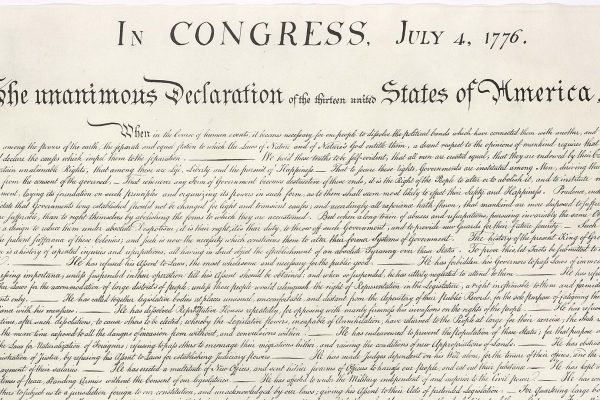 IN CONGRESS, JULY 4, 1776.
The unanimous Declaration of the thirteen united States of America,
When in the Course of human events, it becomes necessary for one people to dissolve the political bands which have connected them with another, and
among the powers of the earth, the separate and equal station to which the Laws of Nature and of Nature's God entitle them, a decent respect to the opinions of mankind requires that
declare the causes which impel them to the separation. We hold these truths to be self-evident, that all men are created equal, that they are endowed by their
certain unalienable Rights, that among these are Life, Liberty and the pursuit of Happiness. That to secure these rights, Governments are instituted among Men, deriving their
from the consent of the governed, That whenever any Form of Government becomes destructive of these ends, it is the Right of the People to alter or to abolish it, and to institute
laying its foundation on such principles and organizing its powers in such form, as to them shall seem most likely to effect their Safety and Happiness. Prudence,
that Governments long established should not be changed for light and transient causes; and accordingly all experience hath shewn, that mankind are more disposed to suffer
sufferable, than to right themselves by abolishing the forms to which they are accustomed. But when a long train of abuses and usurpations, pursuing invariably the same
a design to reduce them under absolute Despotism, it is their right, it is their duty, to throw off such Government, and to provide new Guards for their future security. Such
patient sufferance of these Colonies; and such is now the necessity which constrains them to alter their former Systems of Government. The history of the present King of
is a history of repeated injuries and usurpations, all having in direct object the establishment of an absolute Tyranny over these States. To prove this, let Facts be submitted to
He has refused his Assent to Laws, the most wholesome and necessary for the public good. He has forbidden his Governors to pass Laws of
pressing importance, unless suspended in their operation till his Assent should be obtained; and when so suspended, he has utterly neglected to attend to them. He has
Laws for the accommodation of large districts of people, unless those people would relinquish the right of Representation in the Legislature, a right inestimable to them and
only. He has called together legislative bodies at places unusual, uncomfortable, and distant from the depository of their Public Records, for the sole purpose of fatiguing
with his measures. He has dissolved Representative Houses repeatedly, for opposing with manly firmness his invasions on the rights of the people. He has
time, after such dissolutions, to cause others to be elected; whereby the Legislative powers, incapable of Annihilation, have returned to the People at large for their exercise; the
the mean time exposed to all the dangers of invasion from without, and convulsions within. He has endeavoured to prevent the population of these States; for that purpose
the Laws for Naturalization of Foreigners; refusing to pass others to encourage their migrations hither, and raising the conditions of new Appropriations of Lands. He has
of Justice, by refusing his Assent to Laws for establishing Judiciary powers. He has made Judges dependent on his Will alone, for the tenure of their offices, and the
payment of their salaries. He has erected a multitude of New Offices, and sent hither swarms of Officers to harrass our people, and eat out their substance. He has kept
times of peace, Standing Armies without the Consent of our legislatures. He has affected to render the Military independent of and superior to the Civil power. He has
others to subject us to a jurisdiction foreign to our constitution, and unacknowledged by our laws; giving his Assent to their Acts of pretended Legislation: For Quartering large